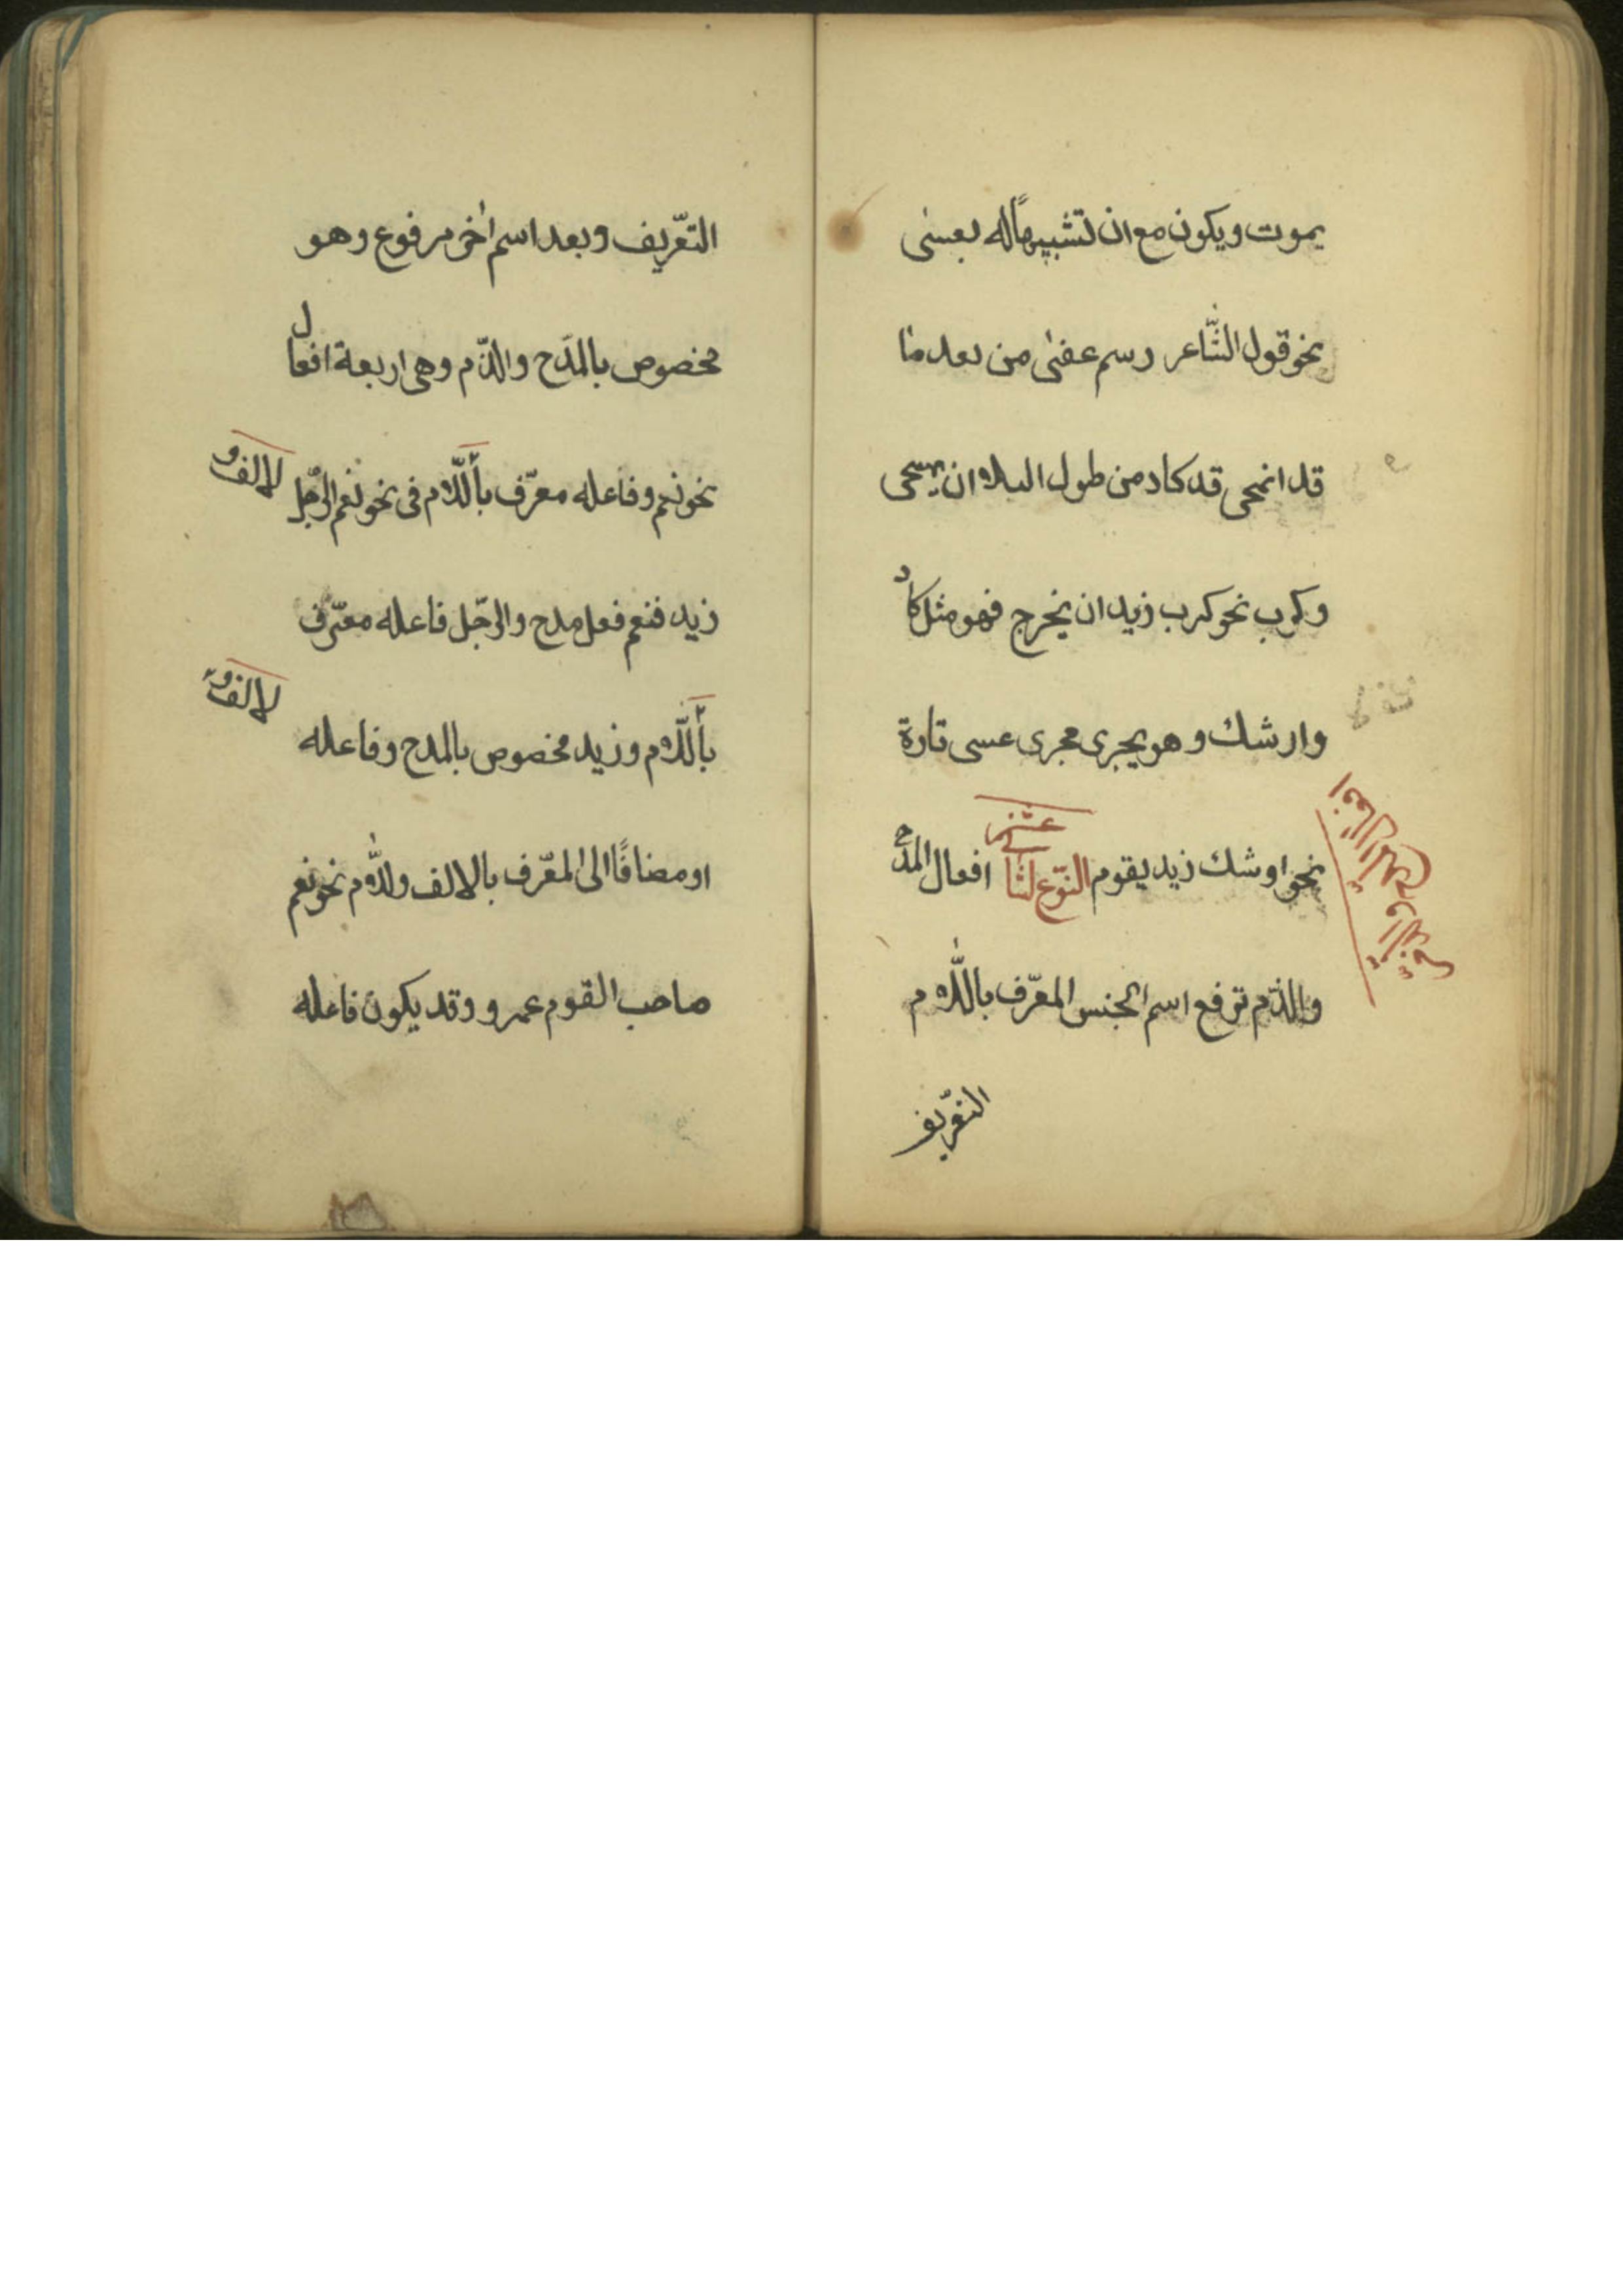 يموت ويكون مع ان تشبيهًا له بعسى
نحو قول الشّاعر رسم عفى من بعد ما
قد انمحى قد كاد من طول البلاه ان يمحى
وكرب نحو كرب زيد ان يخرج فهو مثل كاد
وارشك وهو يجرى مجرى عسى تارة
نحو اوشك زيد يقوم النّوع لثانى عشر افعال المدح
والذّم ترفع اسم الجنس المعّرف باللّام
التعّريف
التعّريف وبعد اسم اخر مرفوع وهو
مخصوص بالمدَح والذّم وهى اربعة افعال
نحو نعم وفاعله معرّف باللّام فى نحو نعم الرّجل
لالف و
زيد فنعم فعل مدح والرّجل فاعله معّرف
باللّام وزيد مخصوص بالمدح وفاعله
لالف و
او مضافًا الى المعّرف بالالف ولّلام نحو نعم
صاحب القوم عمرو وقد يكون فاعله